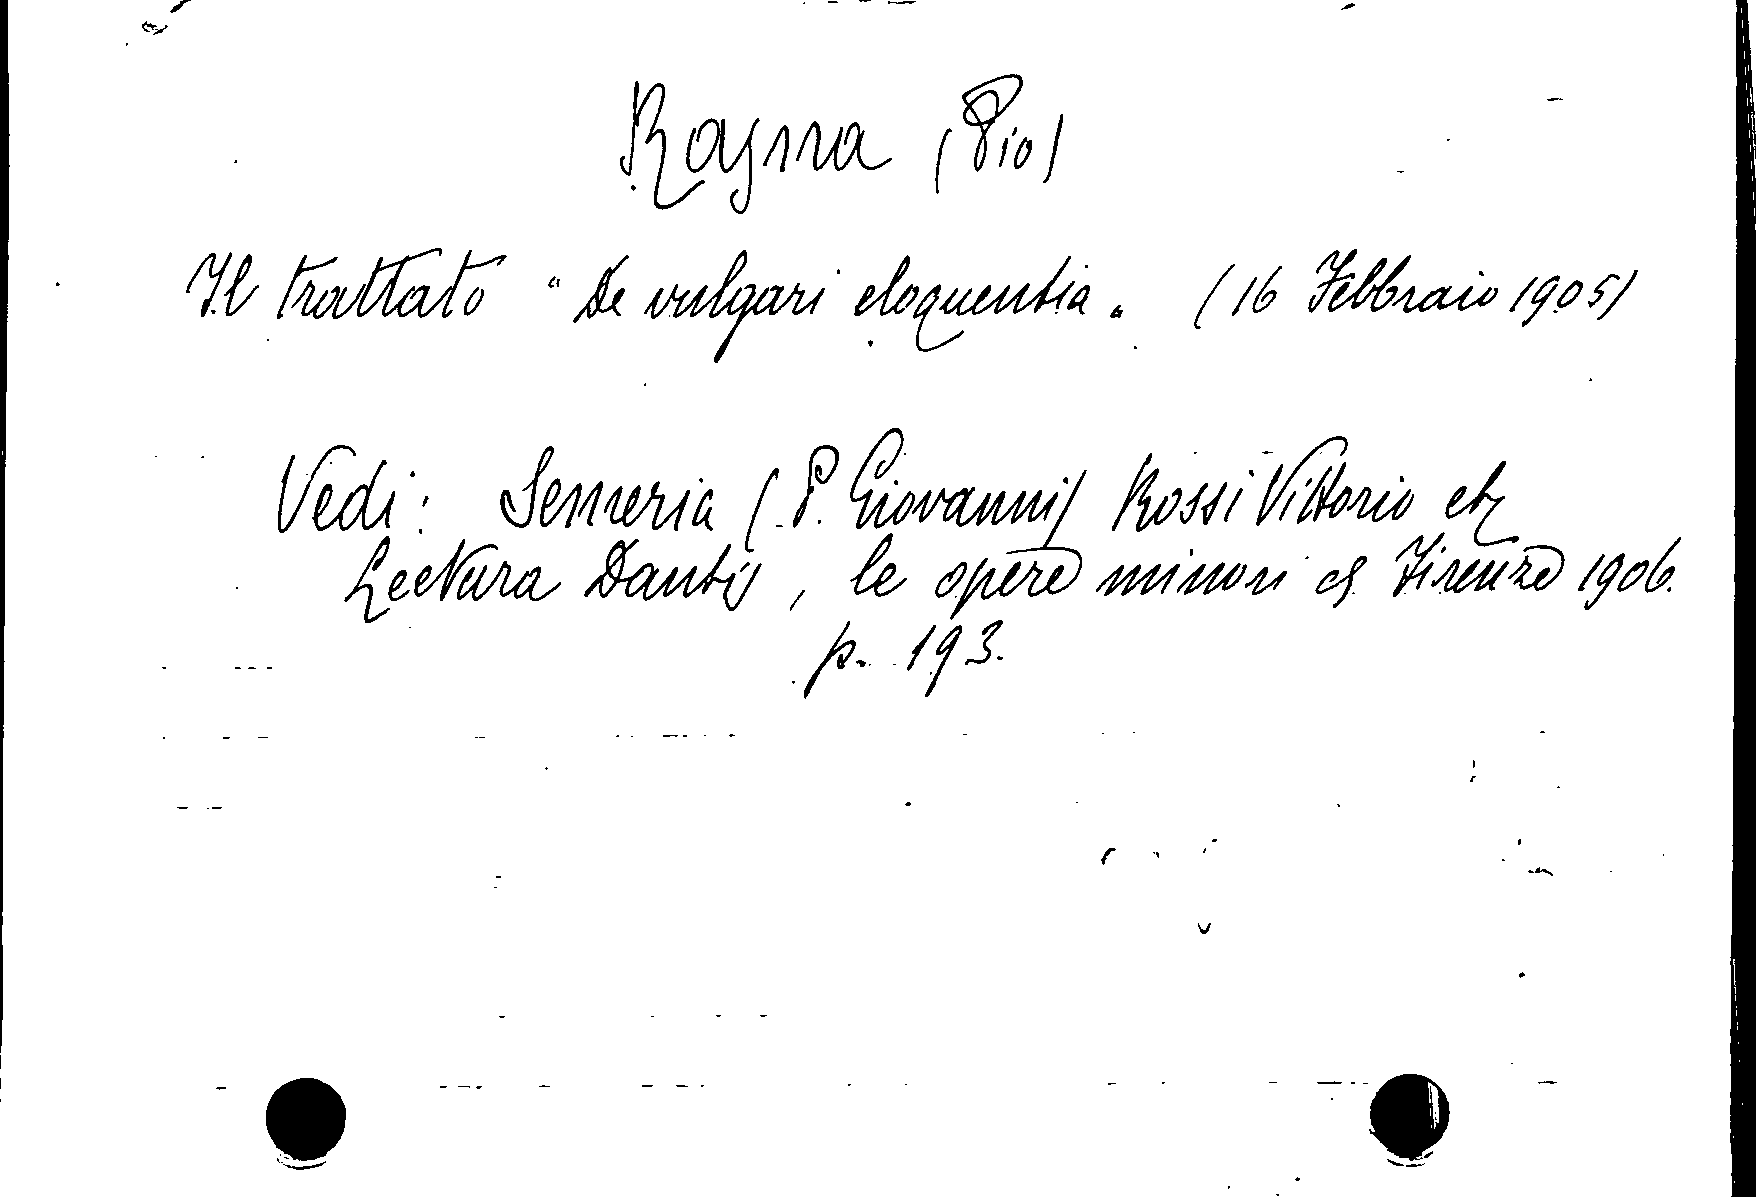 Rajna (Pio)
Il trattato "De vulgari eloquentia„ (16 Febbraio 1905)
Vedi: Semeria (P. Giovanni) Rossi Vittorio etc
Lectura Dantis, le opere minori Firenze 1906.
p. 193.